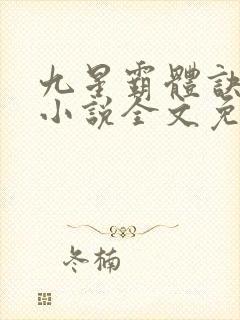 九星霸體訣
小說全文免
冬楠